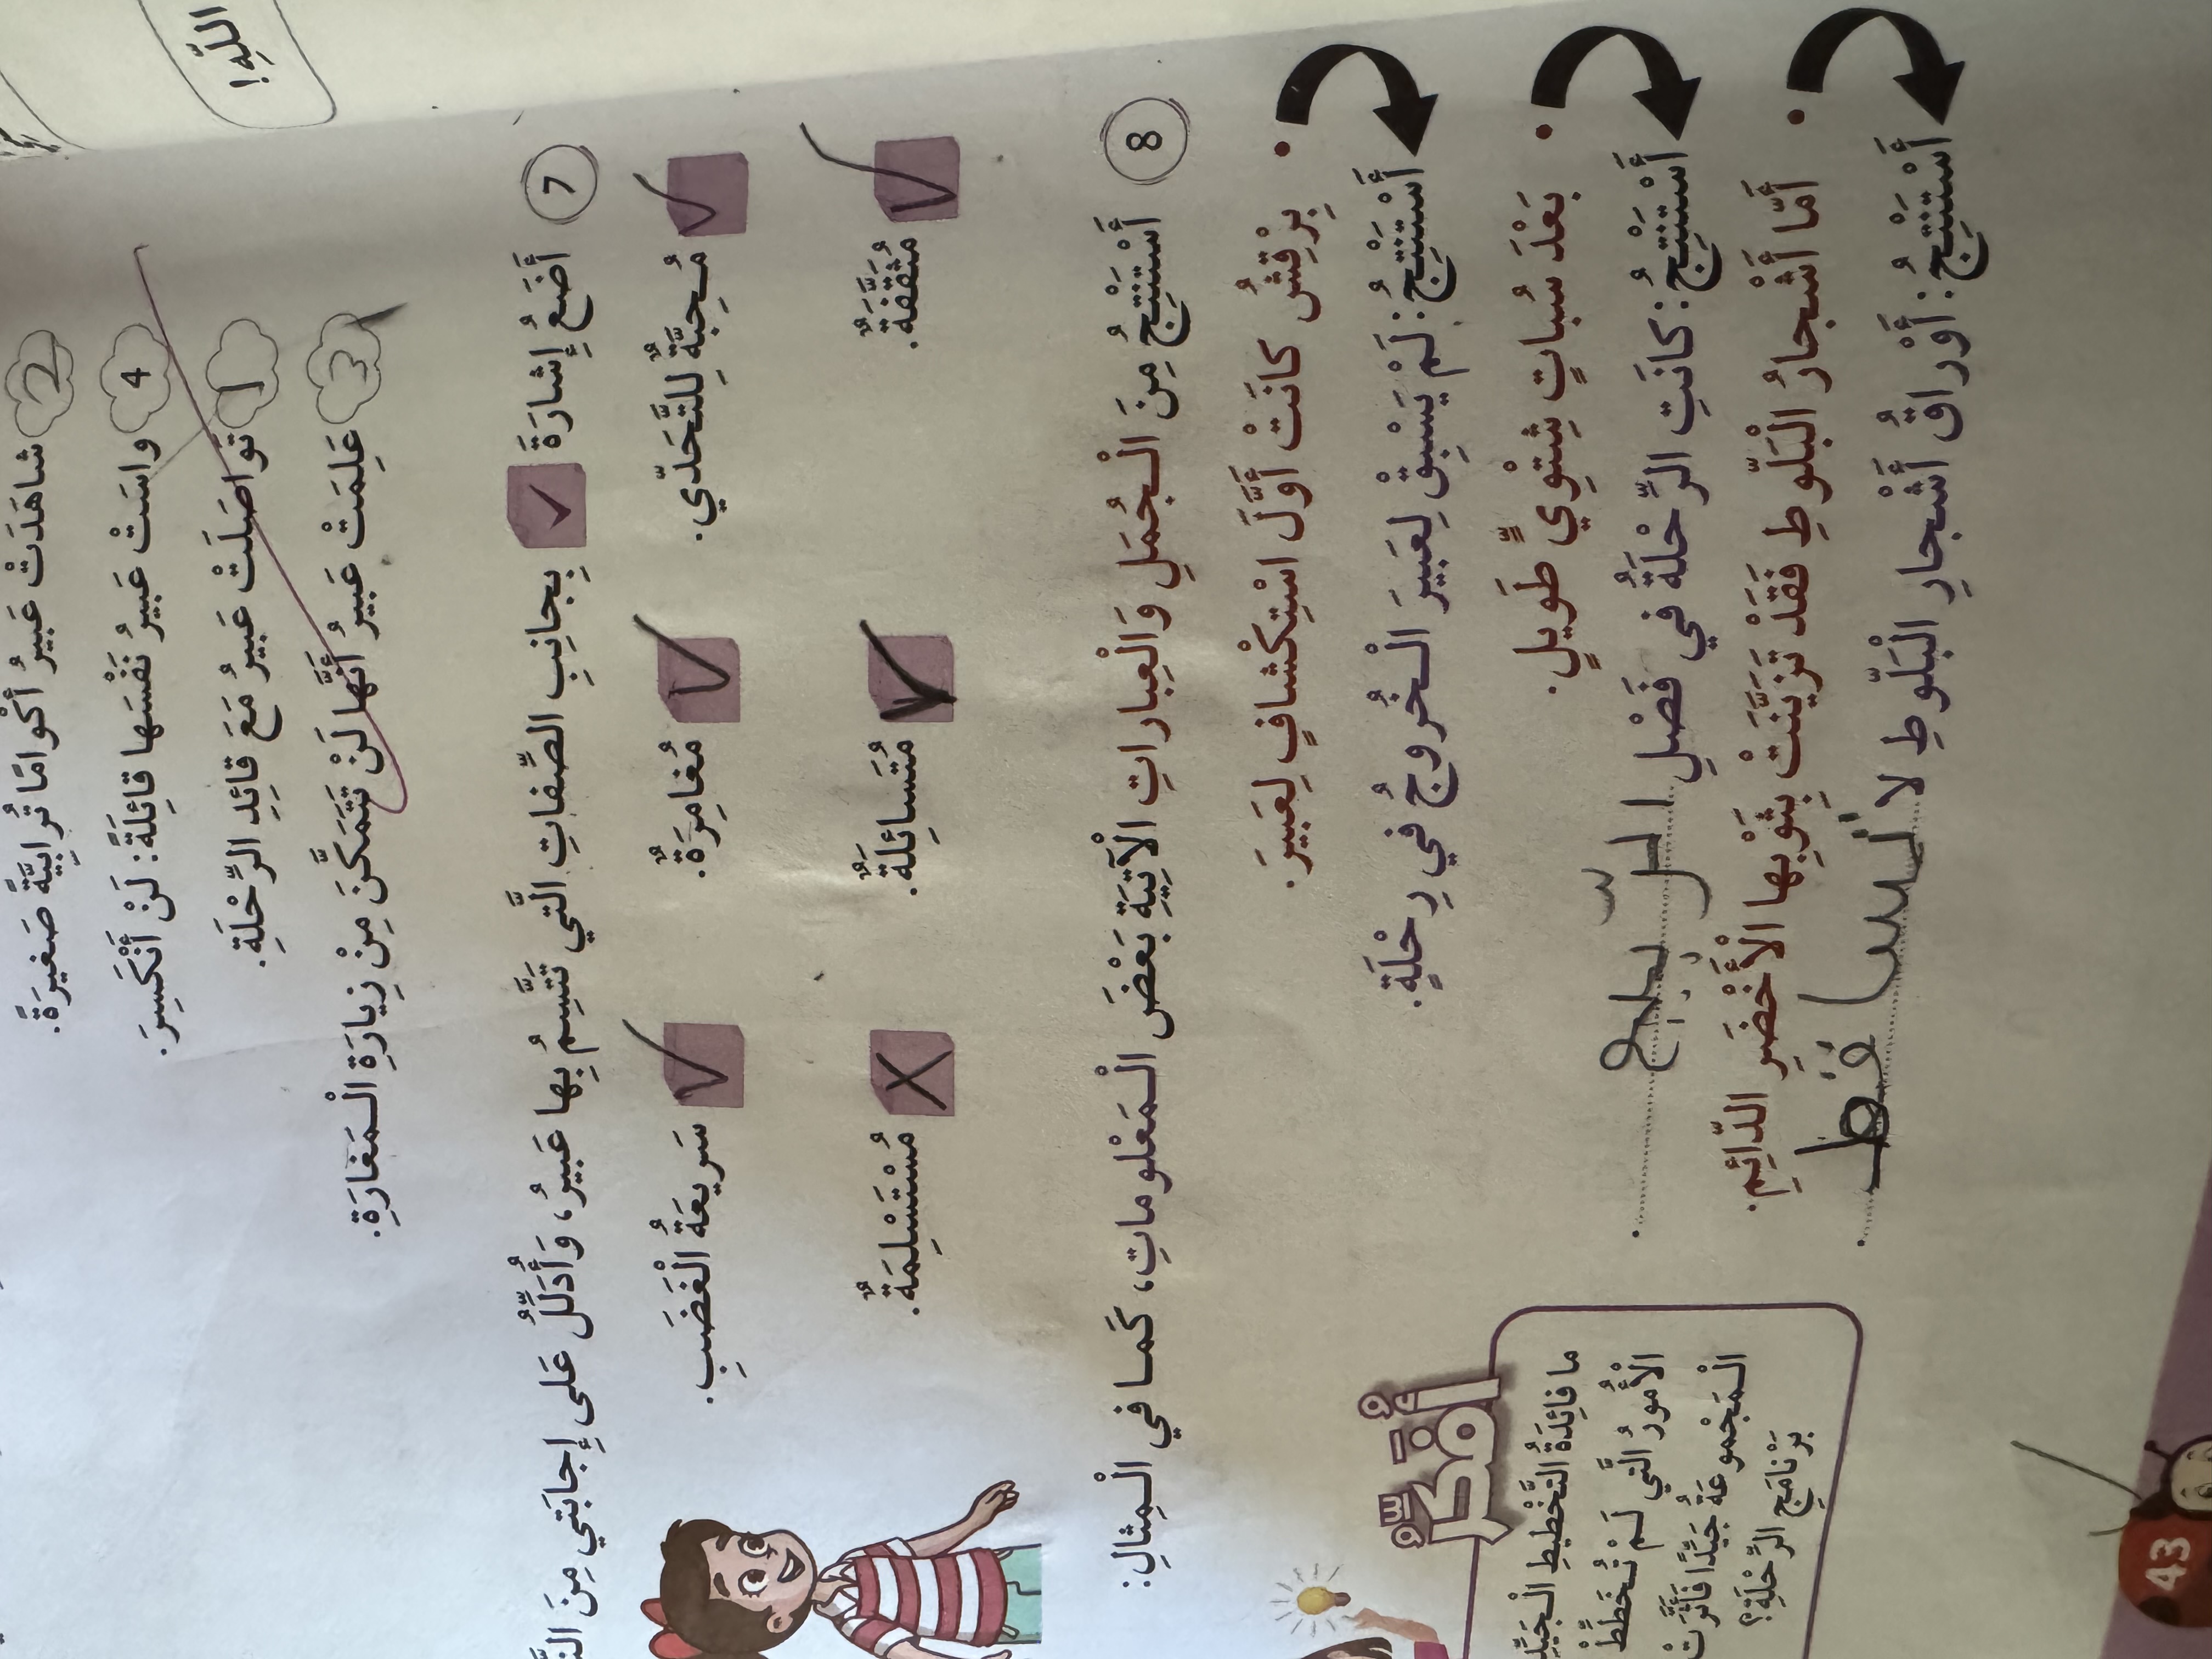 اللّٰهِ!
شاهَدَتْ عَبيرُ أَكْوامًا تُرابِيَّةً صَغيرَةً. 2
واسَتْ عَبيرُ نَفْسَها قائِلَةً: لَنْ أَنْكَسِرَ. 4
تَواصَلَتْ عَبيرُ مَعَ قائِدِ الرِّحْلَةِ. 1
عَلِمَتْ عَبيرُ أَنَّها لَنْ تَتَمَكَّنَ مِنْ زِيارَةِ الْمَغارَةِ. 3
7 أَضَعُ إِشارَةَ ✓ بِجانِبِ الصِّفاتِ الَّتي تَتَّسِمُ بِها عَبيرُ، وَأُدَلِّلُ عَلى إِجابَتي مِنَ
✓ مُحِبَّةٌ لِلتَّحَدّي. ✓ مُغامِرَةٌ. ✓ سَريعَةُ الْغَضَبِ.
✓ مُثَقَّفَةٌ. ✓ مُتَسائِلَةٌ. X مُسْتَسْلِمَةٌ.
8 أَسْتَنْتِجُ مِنَ الْجُمَلِ وَالْعِباراتِ الْآتِيَةِ بَعْضَ الْمَعْلوماتِ، كَما في الْمِثالِ:
• بِرْقِشُ كانَتْ أَوَّلَ اسْتِكْشافٍ لِعَبيرَ.
أَسْتَنْتِجُ: لَمْ يَسْبِقْ لِعَبيرَ الْخُروجُ في رِحْلَةٍ.
• بَعْدَ سُباتٍ شِتْوِيٍّ طَويلٍ.
أَسْتَنْتِجُ: كانَتِ الرِّحْلَةُ في فَصْلِ الرّبيع
• أَمّا أَشْجارُ الْبَلّوطِ فَقَدْ تَزَيَّنَتْ بِثَوْبِها الْأَخْضَرِ الدّائِمِ.
أَسْتَنْتِجُ: أَوْراقُ أَشْجارِ الْبَلّوطِ لا تتساقط
أُفَكِّرُ
ما فائِدَةُ التَّخْطيطِ الْجَيِّدِ
الْأُمورُ الَّتي لَمْ تُخَطِّطْ
الْمَجْموعَةُ جَيِّدًا فَأَثَّرَتْ
بَرْنامَجِ الرِّحْلَةِ؟
43